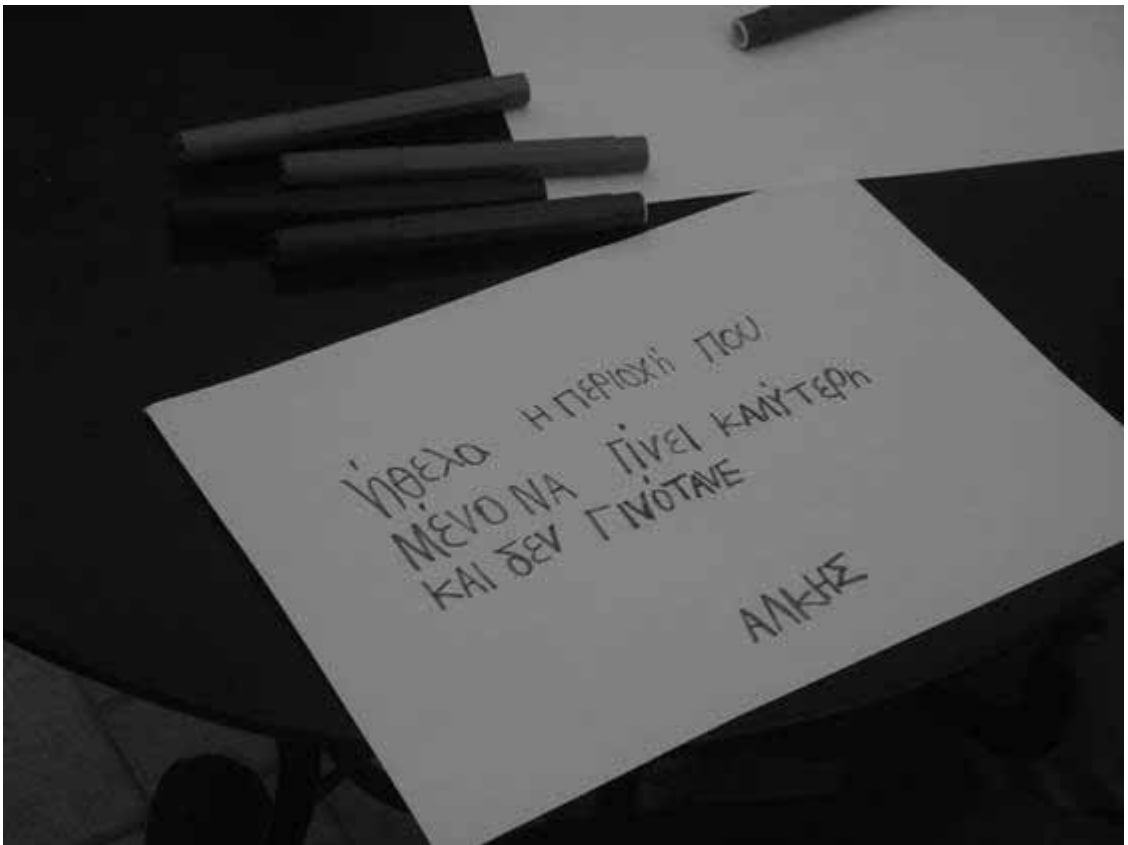 ήθελα Η ΠΕΡΙΟΧΉ ΠΟΥ
ΜΈΝΟ ΝΑ ΓΊΝΕΙ ΚΑΛΎΤΕΡΗ
ΚΑΙ δΕΝ ΓΙΝΌΤΑΝΕ
ΑΛΚΗΣ